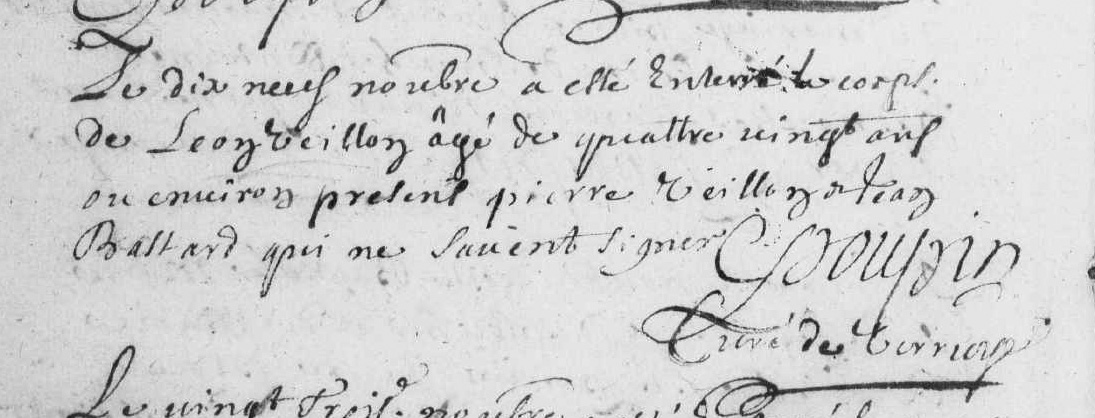 Le dix neuf novebre a esté Enterré le corps
de Leon Veillon âgé de quattre vingt ans
ou environ presens pierre Veillon & Jean
Bastard qui ne savent signer
Curé de
Le vingt trois novebre